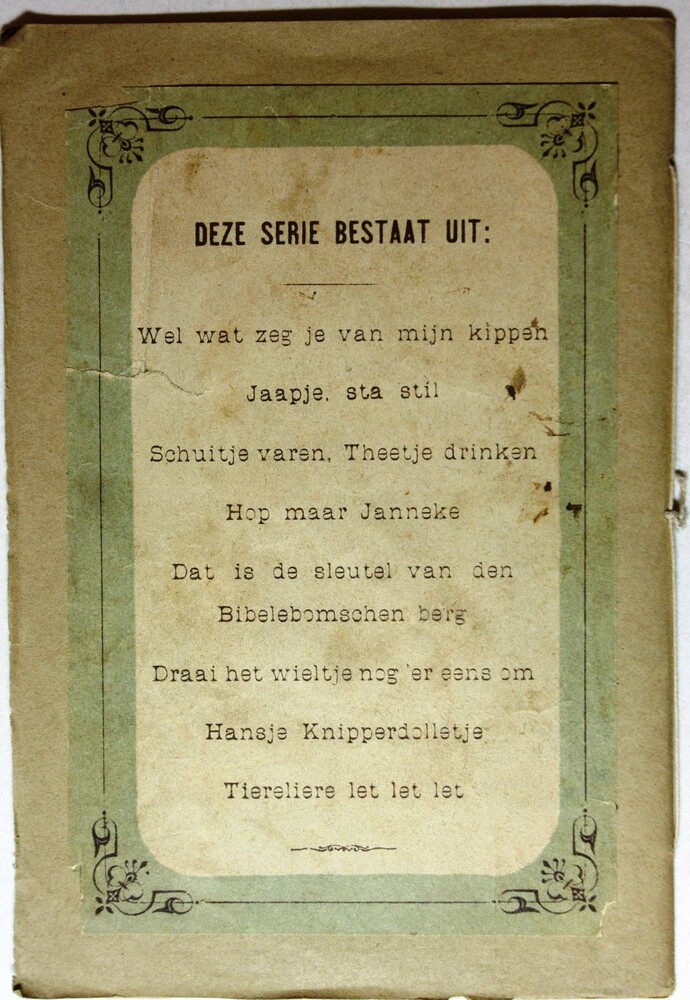 DEZE SERIE BESTAAT UIT:
Wel wat zeg je van mijn kippen
Jaapje, sta stil
Schuitje varen, Theetje drinken
Hop maar Janneke
Dat is de sleutel van den
Bibelebomschen berg
Draai het wieltje nog 'er eens om
Hansje Knipperdolletje
Tiereliere let let let